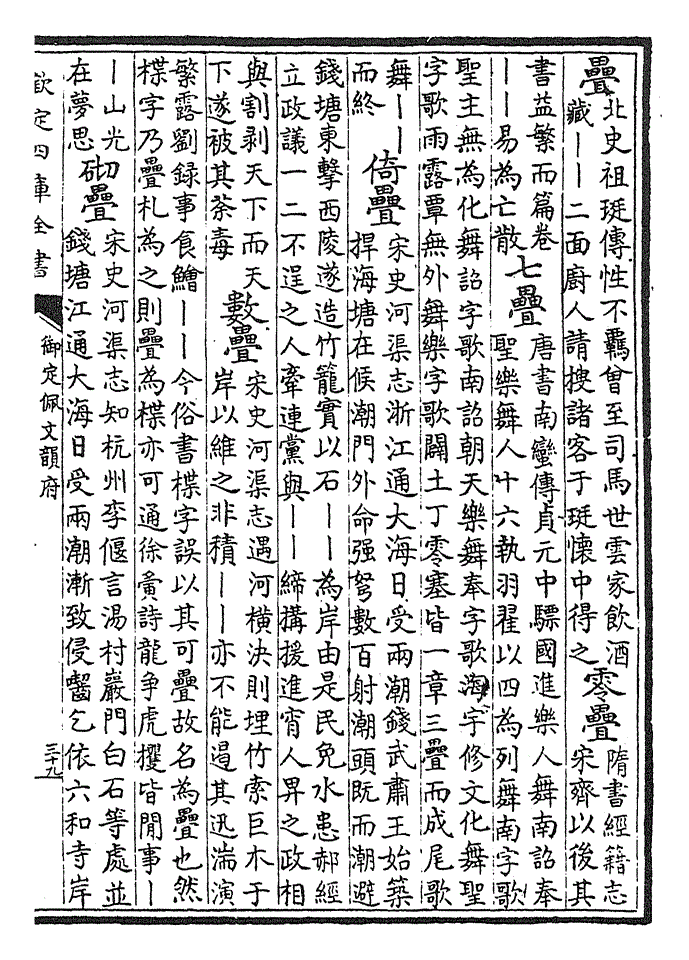 疊
北史祖珽傳性不羈曾至司馬世雲家飲酒
藏——二面厨人請搜諸客于珽懷中得之
零疊
隋書經籍志
宋齊以後其
書益繁而篇卷
——易為亡散
七疊
唐書南蠻傳貞元中驃國進樂人舞南詔奉
聖樂舞人十六執羽翟以四為列舞南字歌
聖主無為化舞詔字歌南詔朝天樂舞奉字歌海宇修文化舞聖
字歌雨露覃無外舞樂字歌闢土丁零塞皆一章三疊而成尾歌
舞——
而終
倚疊
宋史河渠志浙江通大海日受兩潮錢武肅王始築
捍海塘在候潮門外命强弩數百射潮頭既而潮避
錢塘東擊西陵遂造竹籠實以石——為岸由是民免水患郝經
立政議一二不逞之人牽連黨與——締搆援進宵人畀之政相
與割剥天下而天
下遂被其荼毒
數疊
宋史河渠志遇河橫決則埋竹索巨木于
岸以維之非積——亦不能遏其迅湍演
繁露劉録事食鱠——今俗書楪字誤以其可疊故名為疊也然
楪字乃疊札為之則疊為楪亦可通徐夤詩龍争虎攫皆閒事—
—山光
在夢思
砌疊
宋史河渠志知杭州李偃言湯村巖門白石等處並
錢塘江通大海日受兩潮漸致侵齧乞依六和寺岸
欽定四庫全書
御定佩文韻府
三十九